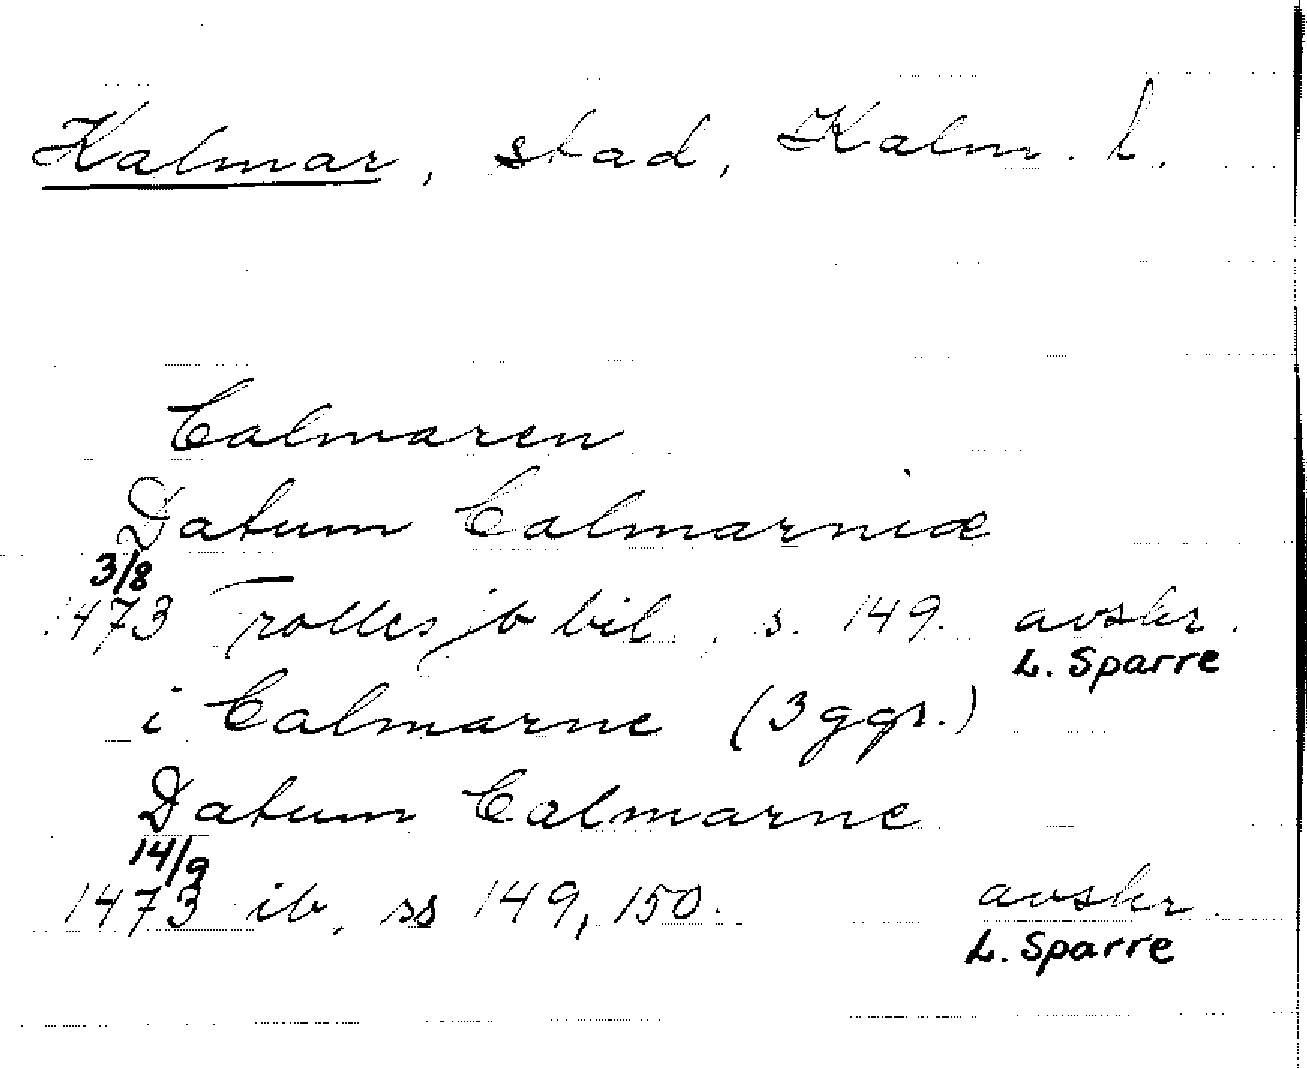 Kalmar, stad, Kalm. l.
Calmaren
Datum Calmarniæ
3/8
1473 Trolles jb bil, s. 149. avskr.
L. Sparre
i Calmarne (3 ggr.)
Datum Calmarne
14/9
1473 ib, ss 149, 150. avskr.
L. Sparre